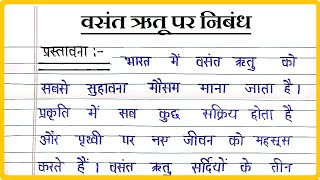 वसंत ऋतू पर निबंध
प्रस्तावना :-
भारत में वसंत ऋतु को
सबसे सुहावना मौसम माना जाता है।
प्रकृति में सब कुछ सक्रिय होता है
और पृथ्वी पर नए जीवन को महसूस
करते हैं। वसंत ऋतु सर्दियों के तीन